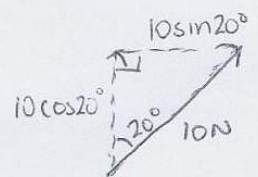 10sin20°
10cos20°
20°
10N